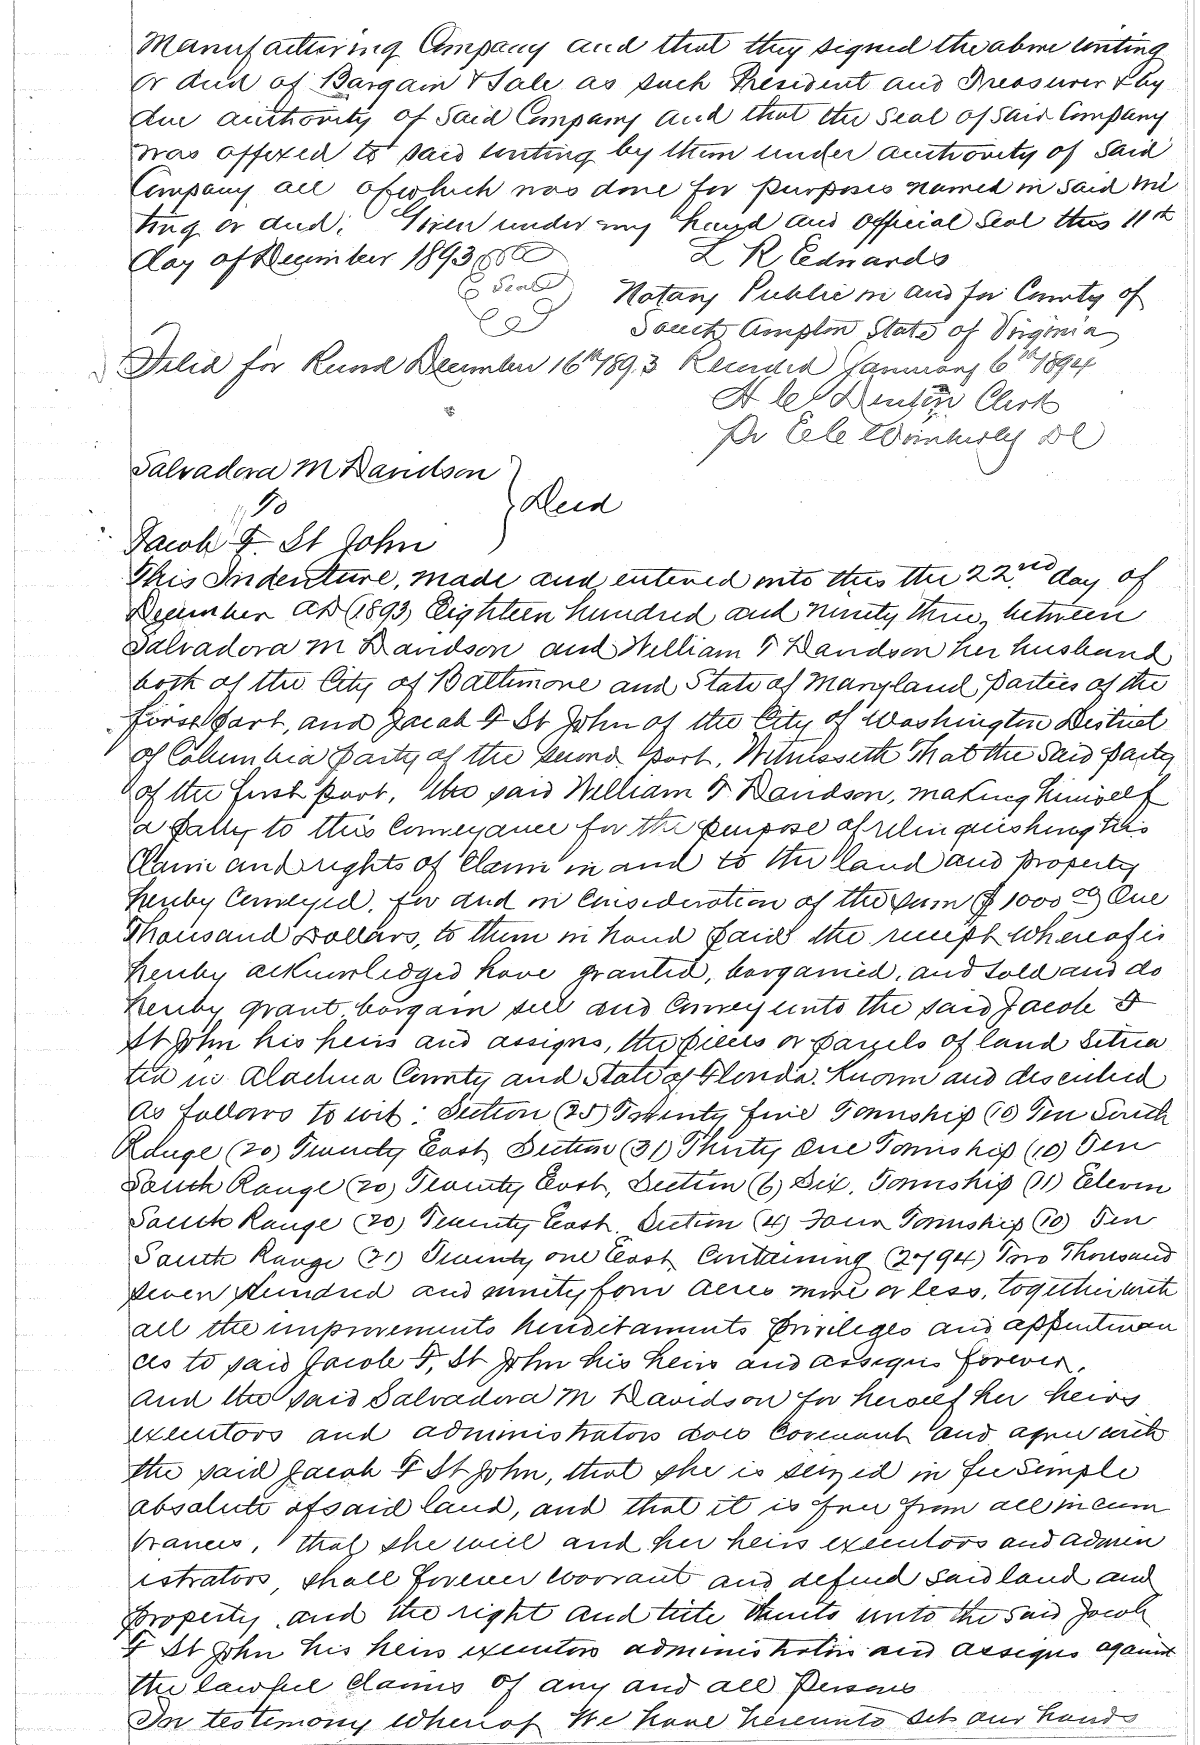 Manufacturing Company and that they signed the above writing
or deed of Bargain & Sale as such President and Treasurer & by
due authority of Said Company and that the Seal of Said Company
was affixed to said writing by them under authority of Said
Company all of which was done for purposes named in said wri
ting or deed. Given under my hand and official Seal this 11th
day of December 1893
L R Edwards
Seal
Notary Public in and for County of
South Ampton State of Virginia
Filed for Record December 16th 1893 Recorded January 6th 1894
H C Denton Clerk
Pr Wimberly DC
Salvadora M Davidson
To
Deed
Jacob F. St John
This Indenture, made and entered into this the 22nd day of
December AD (1893) Eighteen hundred and ninety three, between
Salvadora M Davidson and William T Davidson her husband
both of the City of Baltimore and State of Maryland parties of the
first part, and Jacob F St John of the City of Washington District
of Columbia party of the second part, Witnesseth That the Said party
of the first part, the said William T Davidson, making himself
a party to this Conveyance for the purpose of relinquishing his
Claim and rights of Claim in and to the land and property
hereby Conveyed, for and in Consideration of the sum $1000 00 One
Thousand Dollars, to them in hand paid the receipt whereof is
hereby acknowledged have granted, bargained, and sold and do
hereby grant, bargain sell and Convey unto the said Jacob F
St John his heirs and assigns, the pieces or parcels of land Situa
ted in Alachua County and State of Florida. Known and described
as follows to wit: Section (25) Twenty five Township (10) Ten South
Range (20) Twenty East, Section (31) Thirty One Township (10) Ten
South Range (20) Twenty East, Section (6) Six, Township (11) Eleven
South Range (20) Twenty East, Section (4) Four Township (10) Ten
South Range (21) Twenty one East, Containing (2794) Two Thousand
Seven Hundred and ninety four acres more or less, together with
all the improvements hereditaments privileges and appurtenan
ces to said Jacob F, St John his heirs and assigns forever.
And the said Salvadora M Davidson for herself her heirs
executors and administrators does Covenant and agree with
the said Jacob F St John, that she is seized in fee Simple
absolute of said land, and that it is free from all incum
brances, that she will and her heirs executors and admin
istrators, shall forever warrant and defend said land and
property, and the right and title thereto unto the said Jacob
F St John his heirs executors administrators and assigns against
the lawful claims of any and all Persons
In testimony whereof We have hereunto set our hands